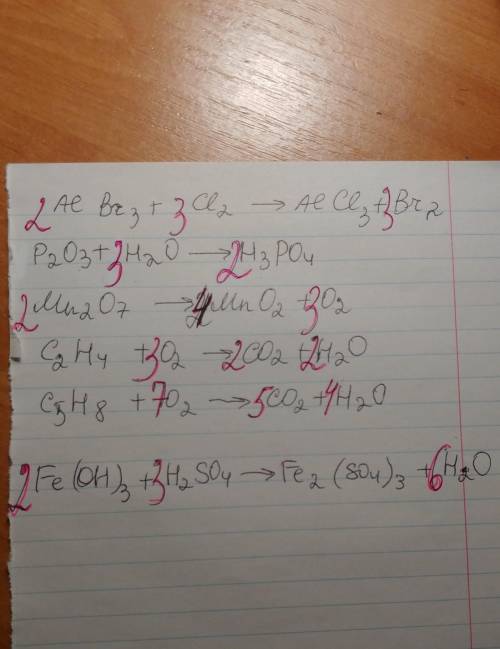 2Al Br3 + 3Cl2 → AlCl3 + 3Br2
P2O3 + 3H2O → 2H3PO4
2Mn2O7 → 4MnO2 + 3O2
C2H4 + 3O2 → 2CO2 + 2H2O
C5H8 + 7O2 → 5CO2 + 4H2O
2Fe(OH)3 + 3H2SO4 → Fe2(SO4)3 + 6H2O